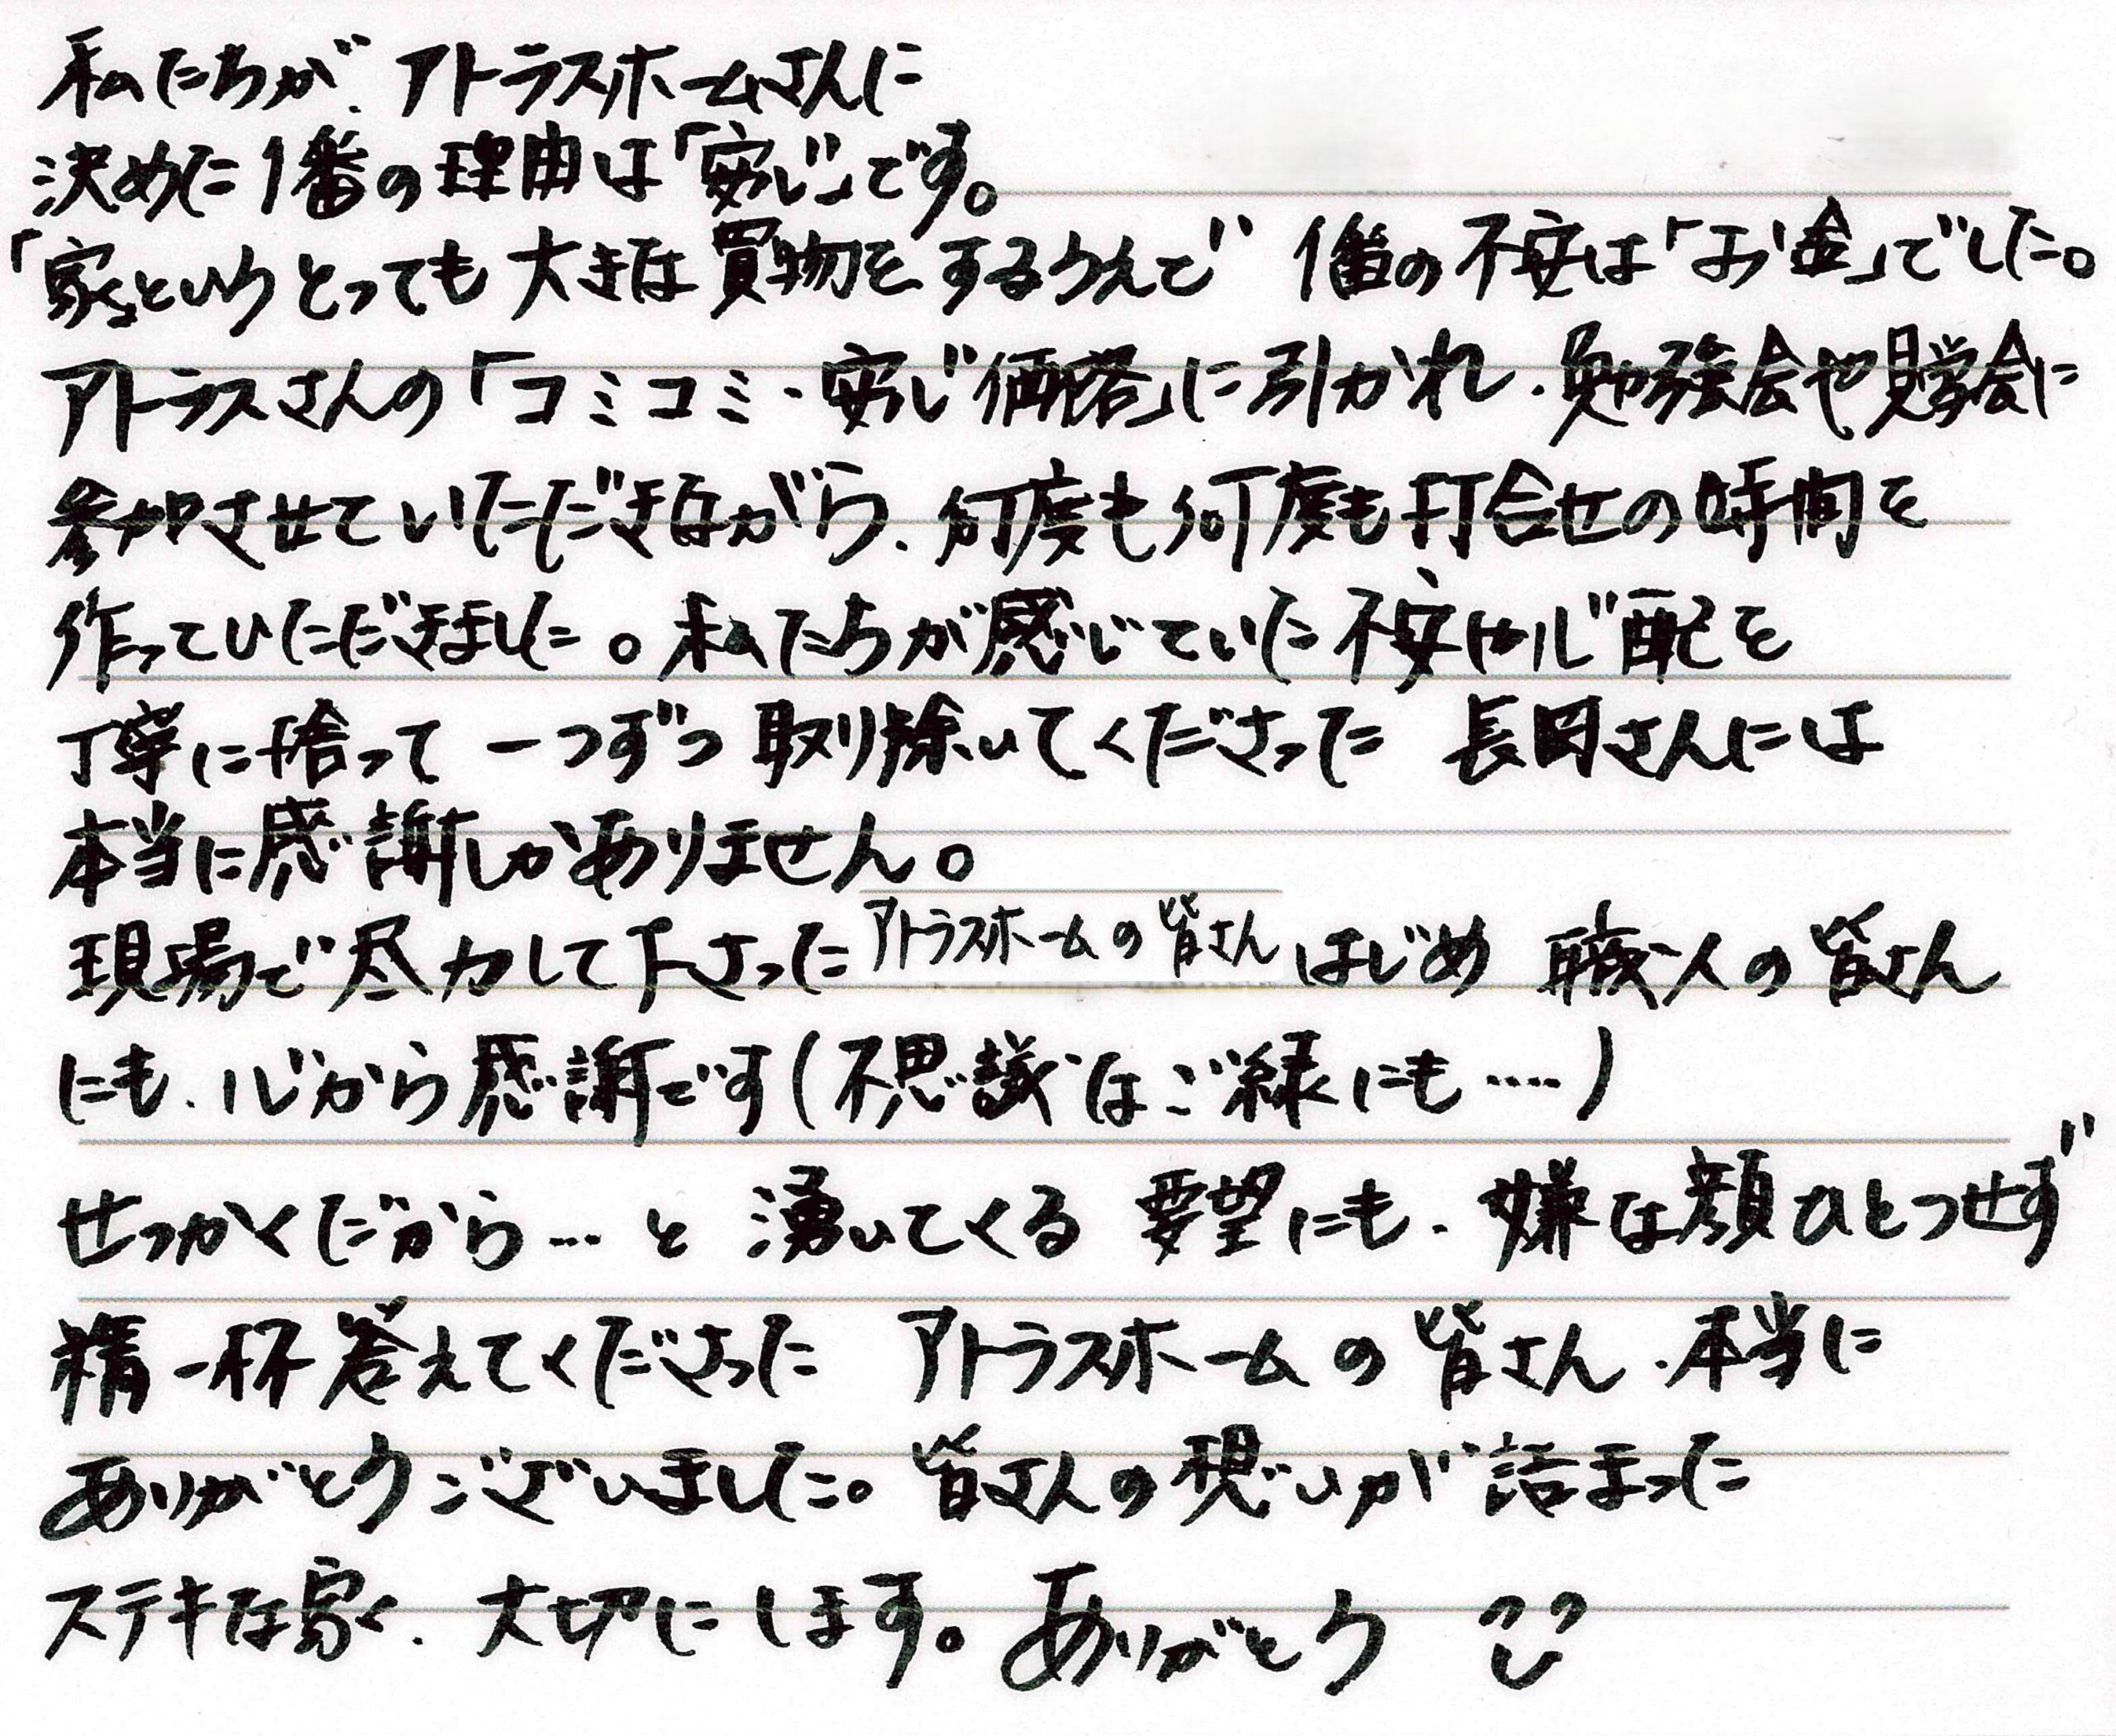 私たちが、アトラスホームさんに
決めた1番の理由は「安心」です。
「家」というとっても大きな買物をするうえで 1番の不安は「お金」でした。
アトラスさんの「コミコミ・安心価格」に引かれ、勉強会や見学会に
参加させていただきながら、何度も何度も打合せの時間を
作っていただきました。私たちが感じていた不安や心配を
丁寧に拾って 一つずつ 取り除いてくださった 長岡さんには
本当に感謝しかありません。
現場で尽力して下さった アトラスホームの皆さん はじめ 職人の皆さん
にも、心から感謝です(不思議なご縁にも……)
せっかくだから…と 湧いてくる 要望にも、嫌な顔ひとつせず
精一杯答えてくださった アトラスホームの皆さん、本当に
ありがとうございました。皆さんの想いが詰まった
ステキな家、大切にします。ありがとう